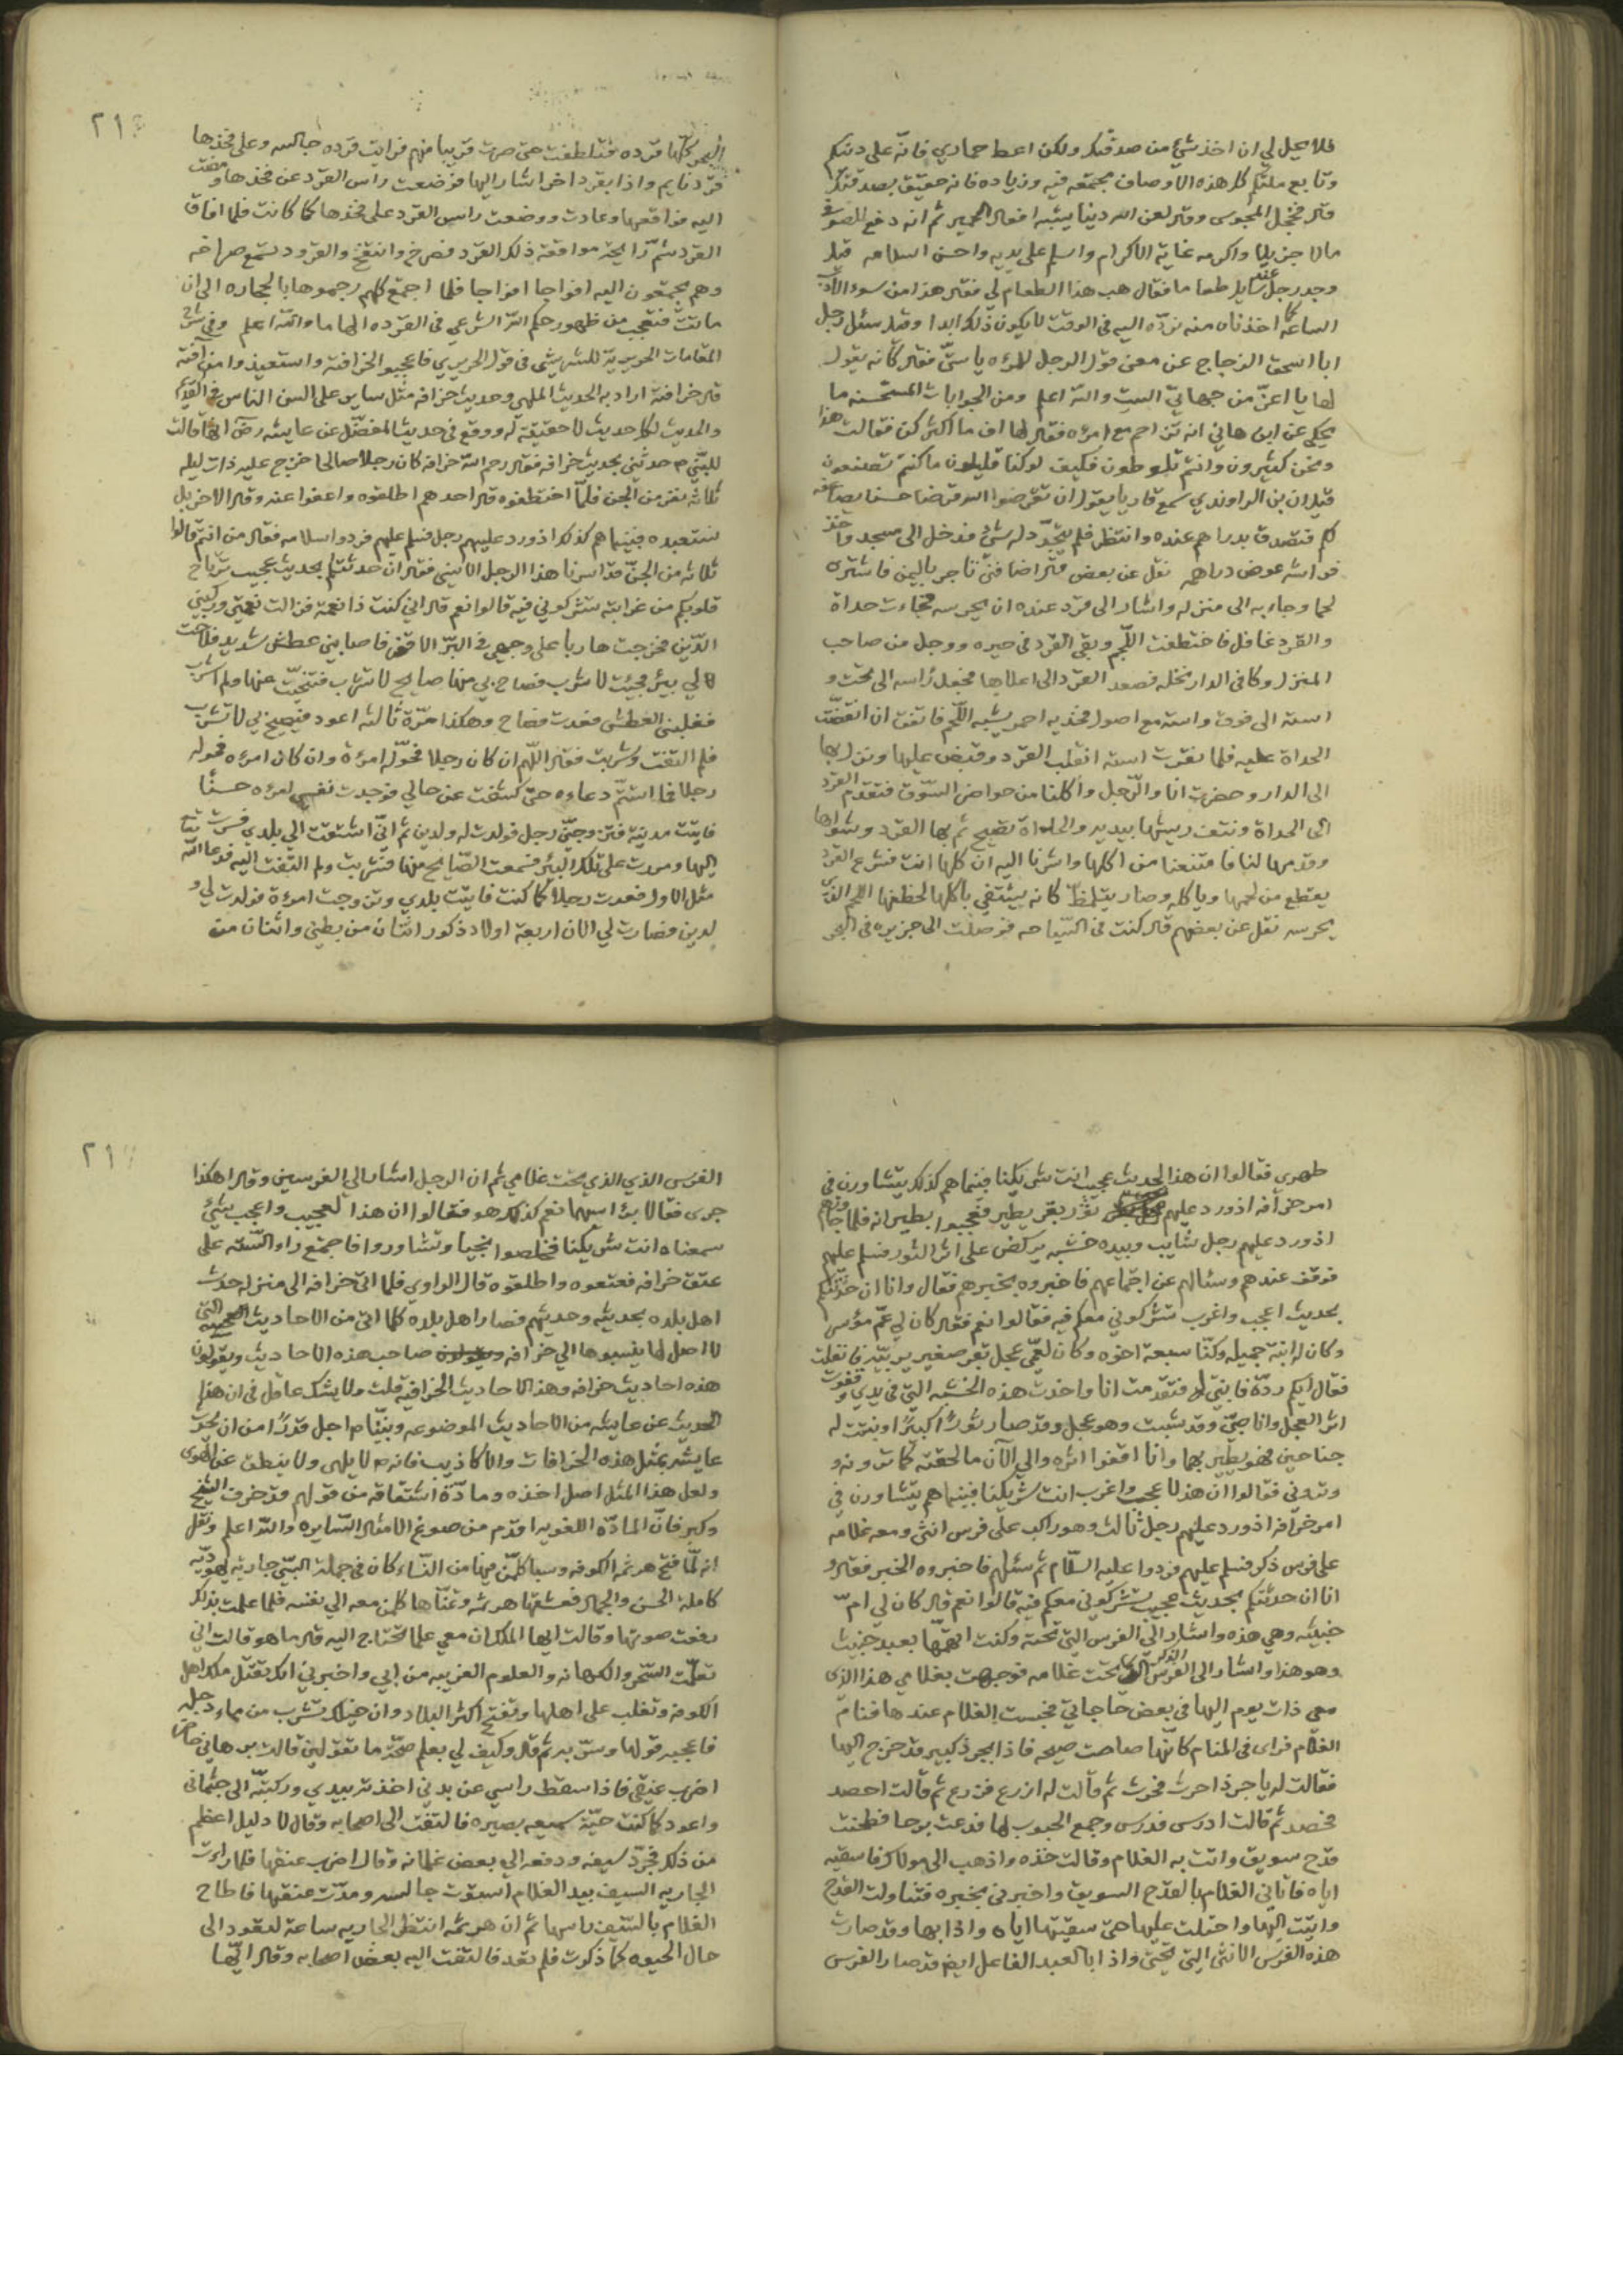 فلا يحل لي ان اخذ شئ من صدقتكم ولكن اعط حماري فانه على دينكم
وتابع ملتكم كل هذه الاوصاف مجتمعه فيه وزياده فانه حقيق بصدقتكم
قال فخجل المجوسي وقال لعن الله دينا يشبه افعال الحمير ثم انه دفع للصوفي
مالا جزيلا واكرمه غاية الاكرام واسلم على يديه واحسن اسلامه قيل
وجد رجل عند سايل طعاما فقال هب هذا الطعام لي فقال هذا من سوء الادب
الساعة اخذناه منه نرده اليه في الوقت لا يكون ذلك ابدا وقيل سئل رجل
ابا اسحق الزجاج عن معنى قول الرجل للمرءه يا ستي فقال كانه يقول
لها يا اعز من جهاتي الست والله اعلم ومن الجوابات المستحسنه ما
يحكى عن ابن هاني انه تزاحم مع امرءه فقال لها اف ما اكثركن فقالت هذا
ونحن كثيرون وانتم تلوطون فكيف لو كنا قليلون ما كنتم تصنعون
قيل ان بن الراوندي سمع قاريا يقول ان تقرضوا الله قرضا حسنا يضاعفه
لكم فتصدق بدراهم عنده وانتظر فلم يتجدد له شئ فدخل الى مسجد واخذ
فراشه عوض دراهمه نقل عن بعض قال اضافني تاجر باليمن فاشترى
لحما وجاء به الى منزله واشار الى قرد عنده ان يحرسه فجاءت حداة
والقرد غافل فاختطفت اللحم وبقى القرد في حيره ووجل من صاحب
المنزل وكان في الدار نخله فصعد القرد الى اعلاها فجعل راسه الى تحت و
استه الى فوق واسته مع اصول فخذيه احمر يشبه اللحم فاتفق ان انقضت
الحداة عليه فلما نقرت استه انقلب القرد وقبض عليها ونزل بها
الى الدار وحضرت انا والرجل واكلنا من حواضر السوق فتقدم القرد
الى الحداة ونتف ريشها بيديه والحداة تصيح ثم بها القرد وشواها
وقدمها لنا فامتنعنا من اكلها واشرنا اليه ان كلها انت فشرع القرد
يقطع من لحمها وياكله وصار يتلمظ كانه يشتفي باكلها لخطفها اللحم الذي
يحرسه نقل عن بعضهم قال كنت في السياحه فوصلت الى جزيره في البحر
البحر كلها قرده فتلطفت حتى صرت قريبا منهم فرايت قرده جالسه وعلى فخذها
قرد نايم واذا بقرد اخر اشار اليها فوضعت راس القرد عن فخذها ومضت
اليه فواقعها وعادت ووضعت راس القرد على فخذها كما كانت فلما افاق
القرد شم رايحة مواقعة ذلك القرد فصرخ وانتفخ والقرود تسمع صراخه
وهم يجتمعون اليه افواجا افواجا فلما اجتمع كلهم رجموها بالحجاره الى ان
ماتت فتعجب من ظهور حكم الله الشرعي في القرده الهاما والله اعلم وفي شرح
المقامات الحريرية للشريشي في قول الحريري فاعجبوا لخرافته واستعيذوا من آفته
قال خرافته اراد به الحديث الملهى وحديث خرافه مثل ساير على السن الناس في القديم
والحديث لكل حديث لا حقيقة له ووقع في حديث المفضل عن عايشه رض انها قالت
للنبي م حدثني بحديث خرافه فقال رحم الله خرافه كان رجلا صالحا خرج عليه ذات ليله
ثلاثه نفر من الجن فلما اختطفوه قال احدهم اطلقوه واعفوا عنه وقال الاخر بل
نستعبده فبينما هم كذلك اذ ورد عليهم رجل فسلم عليهم فردوا سلامه فقال من انتم قالوا
ثلاثه من الجن قد اسرنا هذا الرجل الانيس فقال ان حدثتكم بحديث عجيب ترتاح
قلوبكم من غرابته تشركوني فيه قالوا نعم قال اني كنت ذا نعمة فزالت نعمتي وركبني
الدين فخرجت هاربا على وجهي في البر الاقفر فاصابني عطش شديد فلاحت
لي بير فجئت لاشرب فصاح بي منها صايح لا تشرب فتنحيت عنها ولم اشرب
فغلبني العطش فعدت فصاح وهكذا مرة ثالثه اعود فيصيح بي لا تشرب
فلم التفت وشربت فقال اللهم ان كان رجلا فحوله امرءة وان كان امرءه فحوله
رجلا فما استتم دعاءه حتى كشفت عن حالي فوجدت نفسي امرءه حسنا
فاتيت مدينة فتزوجني رجل فولدت له ولدين ثم اني اشتقت الى بلدي فسرت
اليها ومررت على تلك البير فسمعت الصايح منها فشربت ولم التفت اليه فدعا الله
مثل الاول فعدت رجلا كما كنت فاتيت بلدي وتزوجت امرءة فولدت لي و
لدين فصارت لي الان اربعة اولاد ذكور اثنان من بطني واثنان من
ظهري فقالوا ان هذا لحديث عجيب انت شريكنا فبينما هم كذلك يتشاورن في
امر خرافه اذ ورد عليهم ثور بقر يطير فتعجبوا بطيرانه فلما جاوزهم
اذ ورد عليهم رجل شايب وبيده خشبه يركض على اثر الثور فسلم عليهم
فوقف عندهم وسئالهم عن اجتماعهم فاخبروه بخبرهم فقال وانا ان حدثتكم
بحديث اعجب واغرب تشركوني معكم فيه فقالوا نعم فقال كان لي عم موسر
وكان له ابنة جميله وكنا سبعة اخوه وكان لعمي عجل بقر صغير يربيه فانفلت
فقال ايكم رده فابنتي له فتقدمت انا واخذت هذه الخشبه التي في يدي وقفوت
اثر العجل وانا صبي وقد شبت وهو عجل وقد صار ثورا كبيرا ونبتت له
جناحين فهو يطير بهما وانا اقفوا اثره والى الآن ما لحقته كما ترونه و
وتروني فقالوا ان هذا لاعجب واغرب انت شريكنا فبينما هم يتشاورن في
امر خرافه اذ ورد عليهم رجل ثالث وهو راكب على فرس انثى ومعه غلامه
على فرس ذكر فسلم عليهم فردوا عليه السلام ثم سئلهم فاخبروه الخبر فقال و
انا ان حدثتكم بحديث عجيب تشركوني معكم فيه قالوا نعم قال كان لي ام
خبيثه وهي هذه واشار الى الفرس التي تحته وكنت اتهمها بعبد خبيث
وهو هذا واشار الى الفرس الذكر الذي تحت غلامه فوجهت بغلامي هذا الذي
معي ذات يوم اليها في بعض حاجاتي فحبست الغلام عندها فنام
الغلام فراى في المنام كانها صاحت صيحه فاذا بجرذ كبير قد خرج اليها
فقالت له يا جرذ احرث فحرث ثم قالت له ازرع فزرع ثم قالت احصد
فحصد ثم قالت ادرس فدرس وجمع الحبوب لها فدعت برحا فطحنت
قدح سويق واتت به الغلام وقالت خذه واذهب الى مولاك فاسقيه
اياه فاتاني الغلام بالقدح السويق واخبرني بخبره فتناولت القدح
واتيت اليها واحتلت عليها حتى سقيتها اياه واذا بها وقد صارت
هذه الفرس الانثى التي تحتي واذا بالعبد الفاعل ايضا قد صار الفرس
الفرس الذي الذي تحت غلامي ثم ان الرجل اشار الى الفرسين وقال اهكذا
جرى فقالا برؤاسهما نعم كذلك هو فقالوا ان هذا لعجيب واعجب شئ
سمعناه انت شريكنا فخلصوا نجيا وتشاوروا فاجتمع راو الستة على
عتق خرافه فعتقوه واطلقوه قال الراوي فلما اتى خرافه الى منزله حدث
اهل بلده بحديثه وحديثهم فصار اهل بلده كلما اتى من الاحاديث العجيبه التي
لا اصل لها ينسبوها الى خرافه صاحب هذه الاحاديث ويقولون
هذه احاديث خرافه وهذا الاحاديث الخرافيه قلت ولا يشك عاقل في ان هذا
الحديث عن عايشه من الاحاديث الموضوعه ونبينا م اجل قدرا من ان يحدث
عايشه بمثل هذه الخرافات والاكاذيب فانه م لا يلهى ولا ينطق عن الهوى
ولعل هذا المثل اصل اخذه ومادة اشتقاقه من قولهم قد خرف الشيخ
وكبر فان المادة اللغويه اقدم من صوغ الامثال السايره والله اعلم ونقل
انه لما فتح هرثمه الكوفه وسبا كلمن فيها من النساء كان في جملة السبي جارية يهوديه
كاملة الحسن والجمال فعشقها هرثمه وتمناها كلمن معه الى نفسه فلما علمت بذلك
رفعت صوتها وقالت ايها الملك ان معي علما تحتاج اليه قال ما هو قالت اني
تعلمت السحر والكهانه والعلوم الغريبه من ابي واخبرني انك تقتل ملك اهل
الكوفه وتغلب على اهلها وتفتح اكثر البلاد وان خيلك تشرب من ماء دجله
فاعجبه قولها وسر به ثم قال وكيف لي بعلم صحة ما تقولين قالت برهاني حاضر
اضرب عنقي فاذا سقط راسي عن بدني اخذته بيدي وركبته الى جثماني
واعود كما كنت حية سميعه بصيره فالتفت الى اصحابه وقال لا دليل اعظم
من ذلك فجرد سيفه ودفعه الى بعض غلمانه وقال اضرب عنقها فلما راءت
الجاريه السيف بيد الغلام استوت جالسه ومدت عنقها فاطاح
الغلام بالسيف راسها ثم ان هرثمه انتظر الجاريه ساعة لتعود الى
حال الحيوه كما ذكرت فلم تعد فالتفت اليه بعض اصحابه وقال ايها